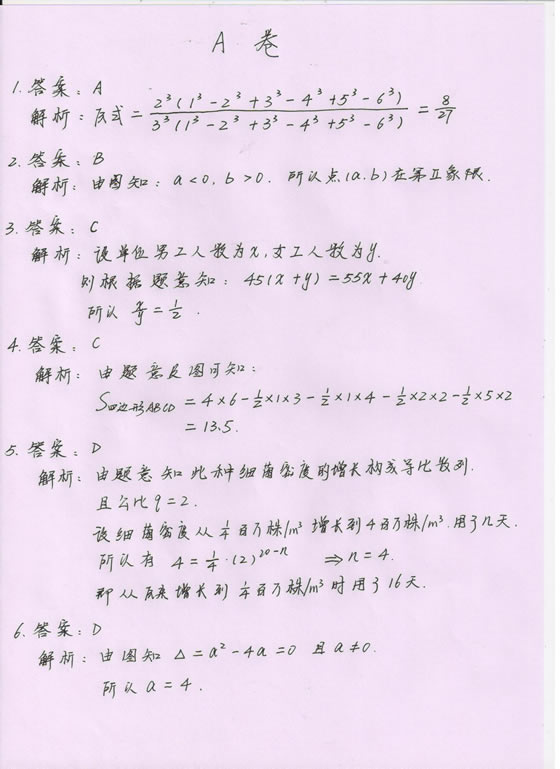 A 卷
1. 答案: A
解析: 原式 = 2³(1³-2³+3³-4³+5³-6³) / 3³(1³-2³+3³-4³+5³-6³) = 8/27
2. 答案: B
解析: 由图知: a<0, b>0. 所以点(a,b)在第Ⅱ象限.
3. 答案: C
解析: 设单位男工人数为x, 女工人数为y.
则根据题意知: 45(x+y)=55x+40y
所以 x/y = 1/2.
4. 答案: C
解析: 由题意及图可知:
S四边形ABCD = 4×6-½×1×3-½×1×4-½×2×2-½×5×2
= 13.5.
5. 答案: D
解析: 由题意知此种细菌密度的增长构成等比数列.
且公比q=2.
设细菌密度从¼百万株/m³增长到4百万株/m³.用了n天.
所以有 4=¼·(2)²⁰⁻ⁿ ⇒n=4.
即从原来增长到¼百万株/m³时用了16天.
6. 答案: D
解析: 由图知 Δ=a²-4a=0 且a≠0.
所以a=4.